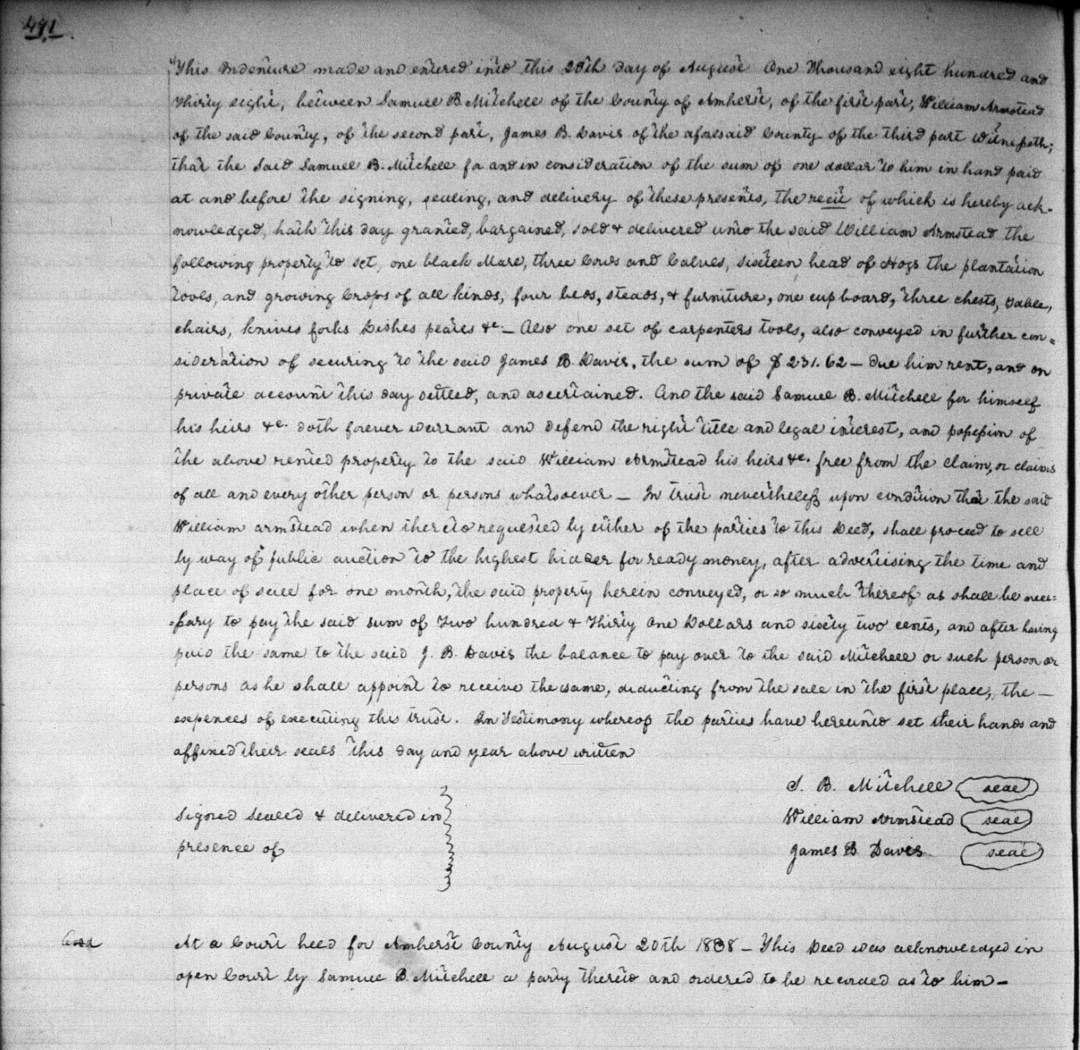 491.
This Indenture made and entered into this 20th day of August One Thousand eight hundred and
thirty eight, between Samuel B. Mitchell of the County of Amherst, of the first part, William Armstead
of the said County, of the second part, James B. Davis of the afaesaid County of the third part Witnesseth;
that the Said Samuel B. Mitchell fa and in consideration of the sum of one dollar to him in hand paid
at and before the signing, sealing, and delivery of these presents, the recit of which is hereby ack-
nowledged, hath this day granted, bargained, sold & delivered unto the said William Armstead the
following property to set, one black Mare, three Cows and Calves, sixteen head of Hogs the plantation
tools, and growing Crops of all kinds, four beds, steads, & furniture, one cupboard, three chests, table,
chairs, knives forks Dishes plates &c — Also one set of carpenters tools, also conveyed in further con=
sideration of securing to the said James B. Davis, the sum of $231.62 — due him rent, and on
private account this day settled, and ascertained. And the said Samuel B. Mitchell for himself
his heirs &c. doth forever warrant and defend the right title and legal interest, and possession of
the above rented property to the said William Armstead his heirs &c. free from the claim, or claims
of all and every other person or persons whatsoever — In trust nevertheless upon condition that the said
William armstead when thereto requested by either of the parties to this Deed, shall proceed to sell
by way of public auction to the highest bidder for ready money, after advertising the time and
place of sale for one month, the said property herein conveyed, or so much thereof as shall be nece=
=ssary to pay the said sum of Two hundred & Thirty One Dollars and sixty two cents, and after having
paid the same to the said J. B. Davis the balance to pay over to the said Mitchell or such person or
persons as he shall appoint to receive the same, deducting from the sale in the first place, the —
expences of executing this trust. In Testimony whereof the parties have hereunto set their hands and
affixed their seals this day and year above written
S. B. Mitchell seal
Signed Sealed & delivered in William Armstead seal
presence of James B Davis. seal
At a Court held for Amherst County August 20th 1838 — This Deed was acknowledged in
open Court by Samuel B. Mitchell a party thereto and ordered to be recorded as to him —